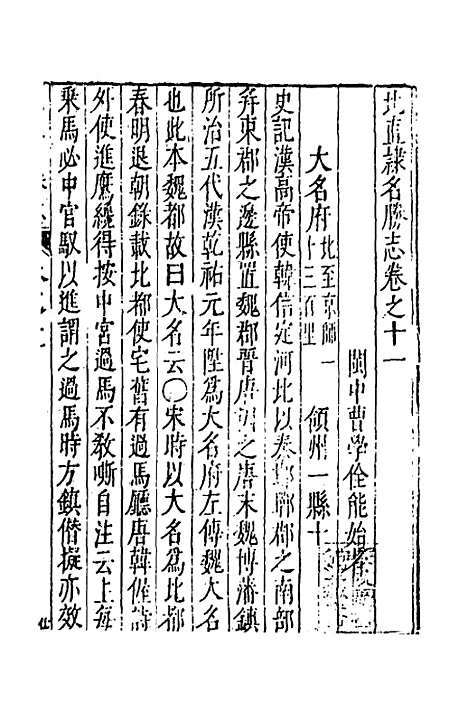 北直隷名勝志卷之十一
閩中曹學佺能始
大名府北至京師一千三百里 領州一縣十
史記漢高帝使韓信定河北以秦邯鄲郡之南部
并東郡之邊縣置魏郡晉唐因之唐末魏博藩鎮
所治五代漢乾祐元年陞爲大名府左傳魏大名
也此本魏都故曰大名云〇宋時以大名爲北都
春明退朝錄載北都使宅舊有過馬廳唐韓偓詩
外使進鷹纔得按中宮過馬不敎嘶自注云上每
乘馬必中官馭以進謂之過馬時方鎮僭擬亦效